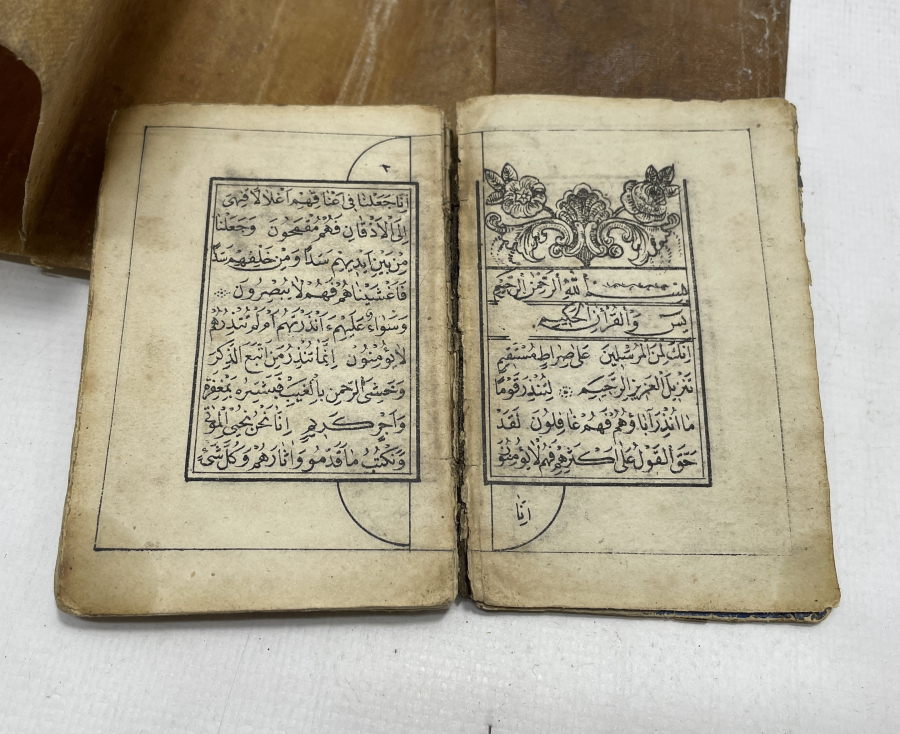 بسم الله الرحمن الرحيم
يس والقران الحكيم
انك لمن المرسلين على صراط مستقيم
تنزيل العزيز الرحيم لتنذر قوما
ما انذر اباؤهم فهم غافلون لقد
حق القول على اكثرهم فهم لا يؤمنون
انا
٢
انا جعلنا في اعناقهم اغلالا فهى
الى الاذقان فهم مقمحون وجعلنا
من بين ايديهم سدا ومن خلفهم سدا
فاغشيناهم فهم لا يبصرون
وسواء عليهم ءانذرتهم ام لم تنذرهم
لا يؤمنون انما تنذر من اتبع الذكر
وخشى الرحمن بالغيب فبشره بمغفرة
واجر كريم انا نحن نحي الموتى
ونكتب ما قدموا واثارهم وكل شئ